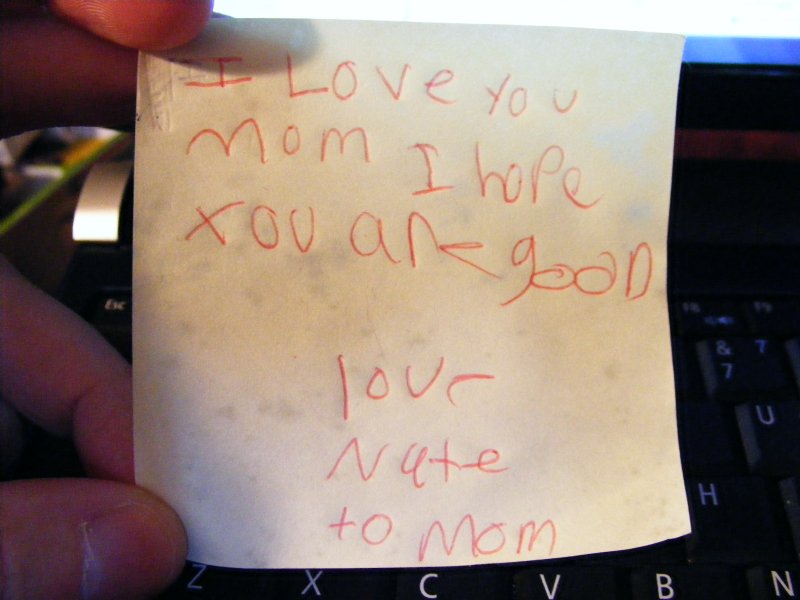 I Love you
mom I hope
you are good
love
Nate
to mom
Esc
F8
F9
& 7
7
U
H
Z X C V B N